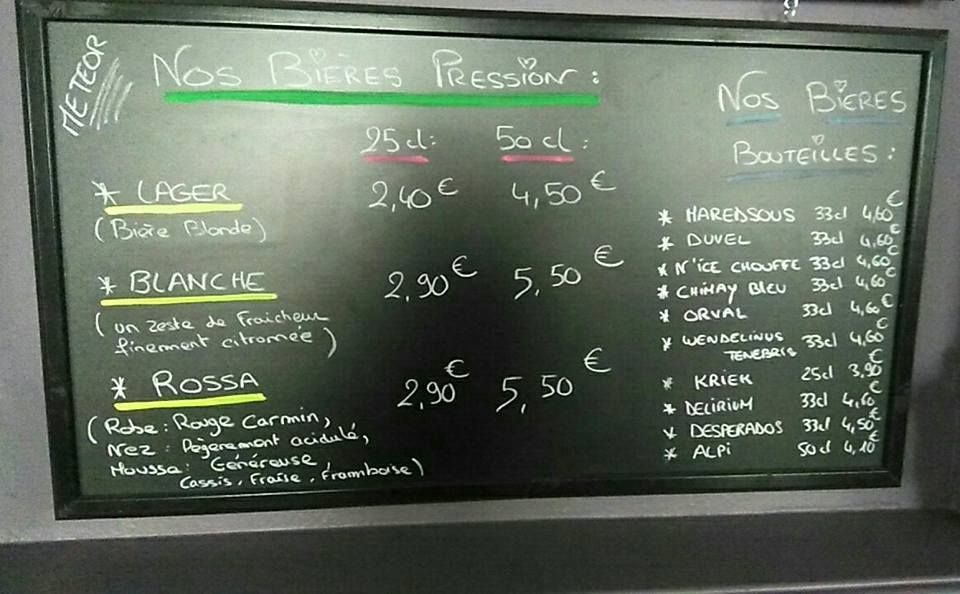 METEOR
NOS BIÈRES PRESSION :
25 cl : 50 cl :
* LAGER 2,40 € 4,50 €
(Bière Blonde)
* BLANCHE 2,90 € 5,50 €
(un zeste de Fraicheur
finement citromée)
* ROSSA 2,90 € 5,50 €
(Robe : Rouge Carmin,
Nez : Légèrement acidulé,
Mousse : Généreuse
Cassis, Fraise, Framboise)
NOS BIÈRES
BOUTEILLES :
* MAREDSOUS 33cl 4,60 €
* DUVEL 33cl 4,60 €
* N'ICE CHOUFFE 33cl 4,60 €
* CHIMAY BLEU 33cl 4,60 €
* ORVAL 33cl 4,60 €
* WENDELINUS
TENEBRIS 33cl 4,60 €
* KRIEK 25cl 3,90 €
* DELIRIUM 33cl 4,60 €
* DESPERADOS 33cl 4,50 €
* ALPI 50cl 4,10 €